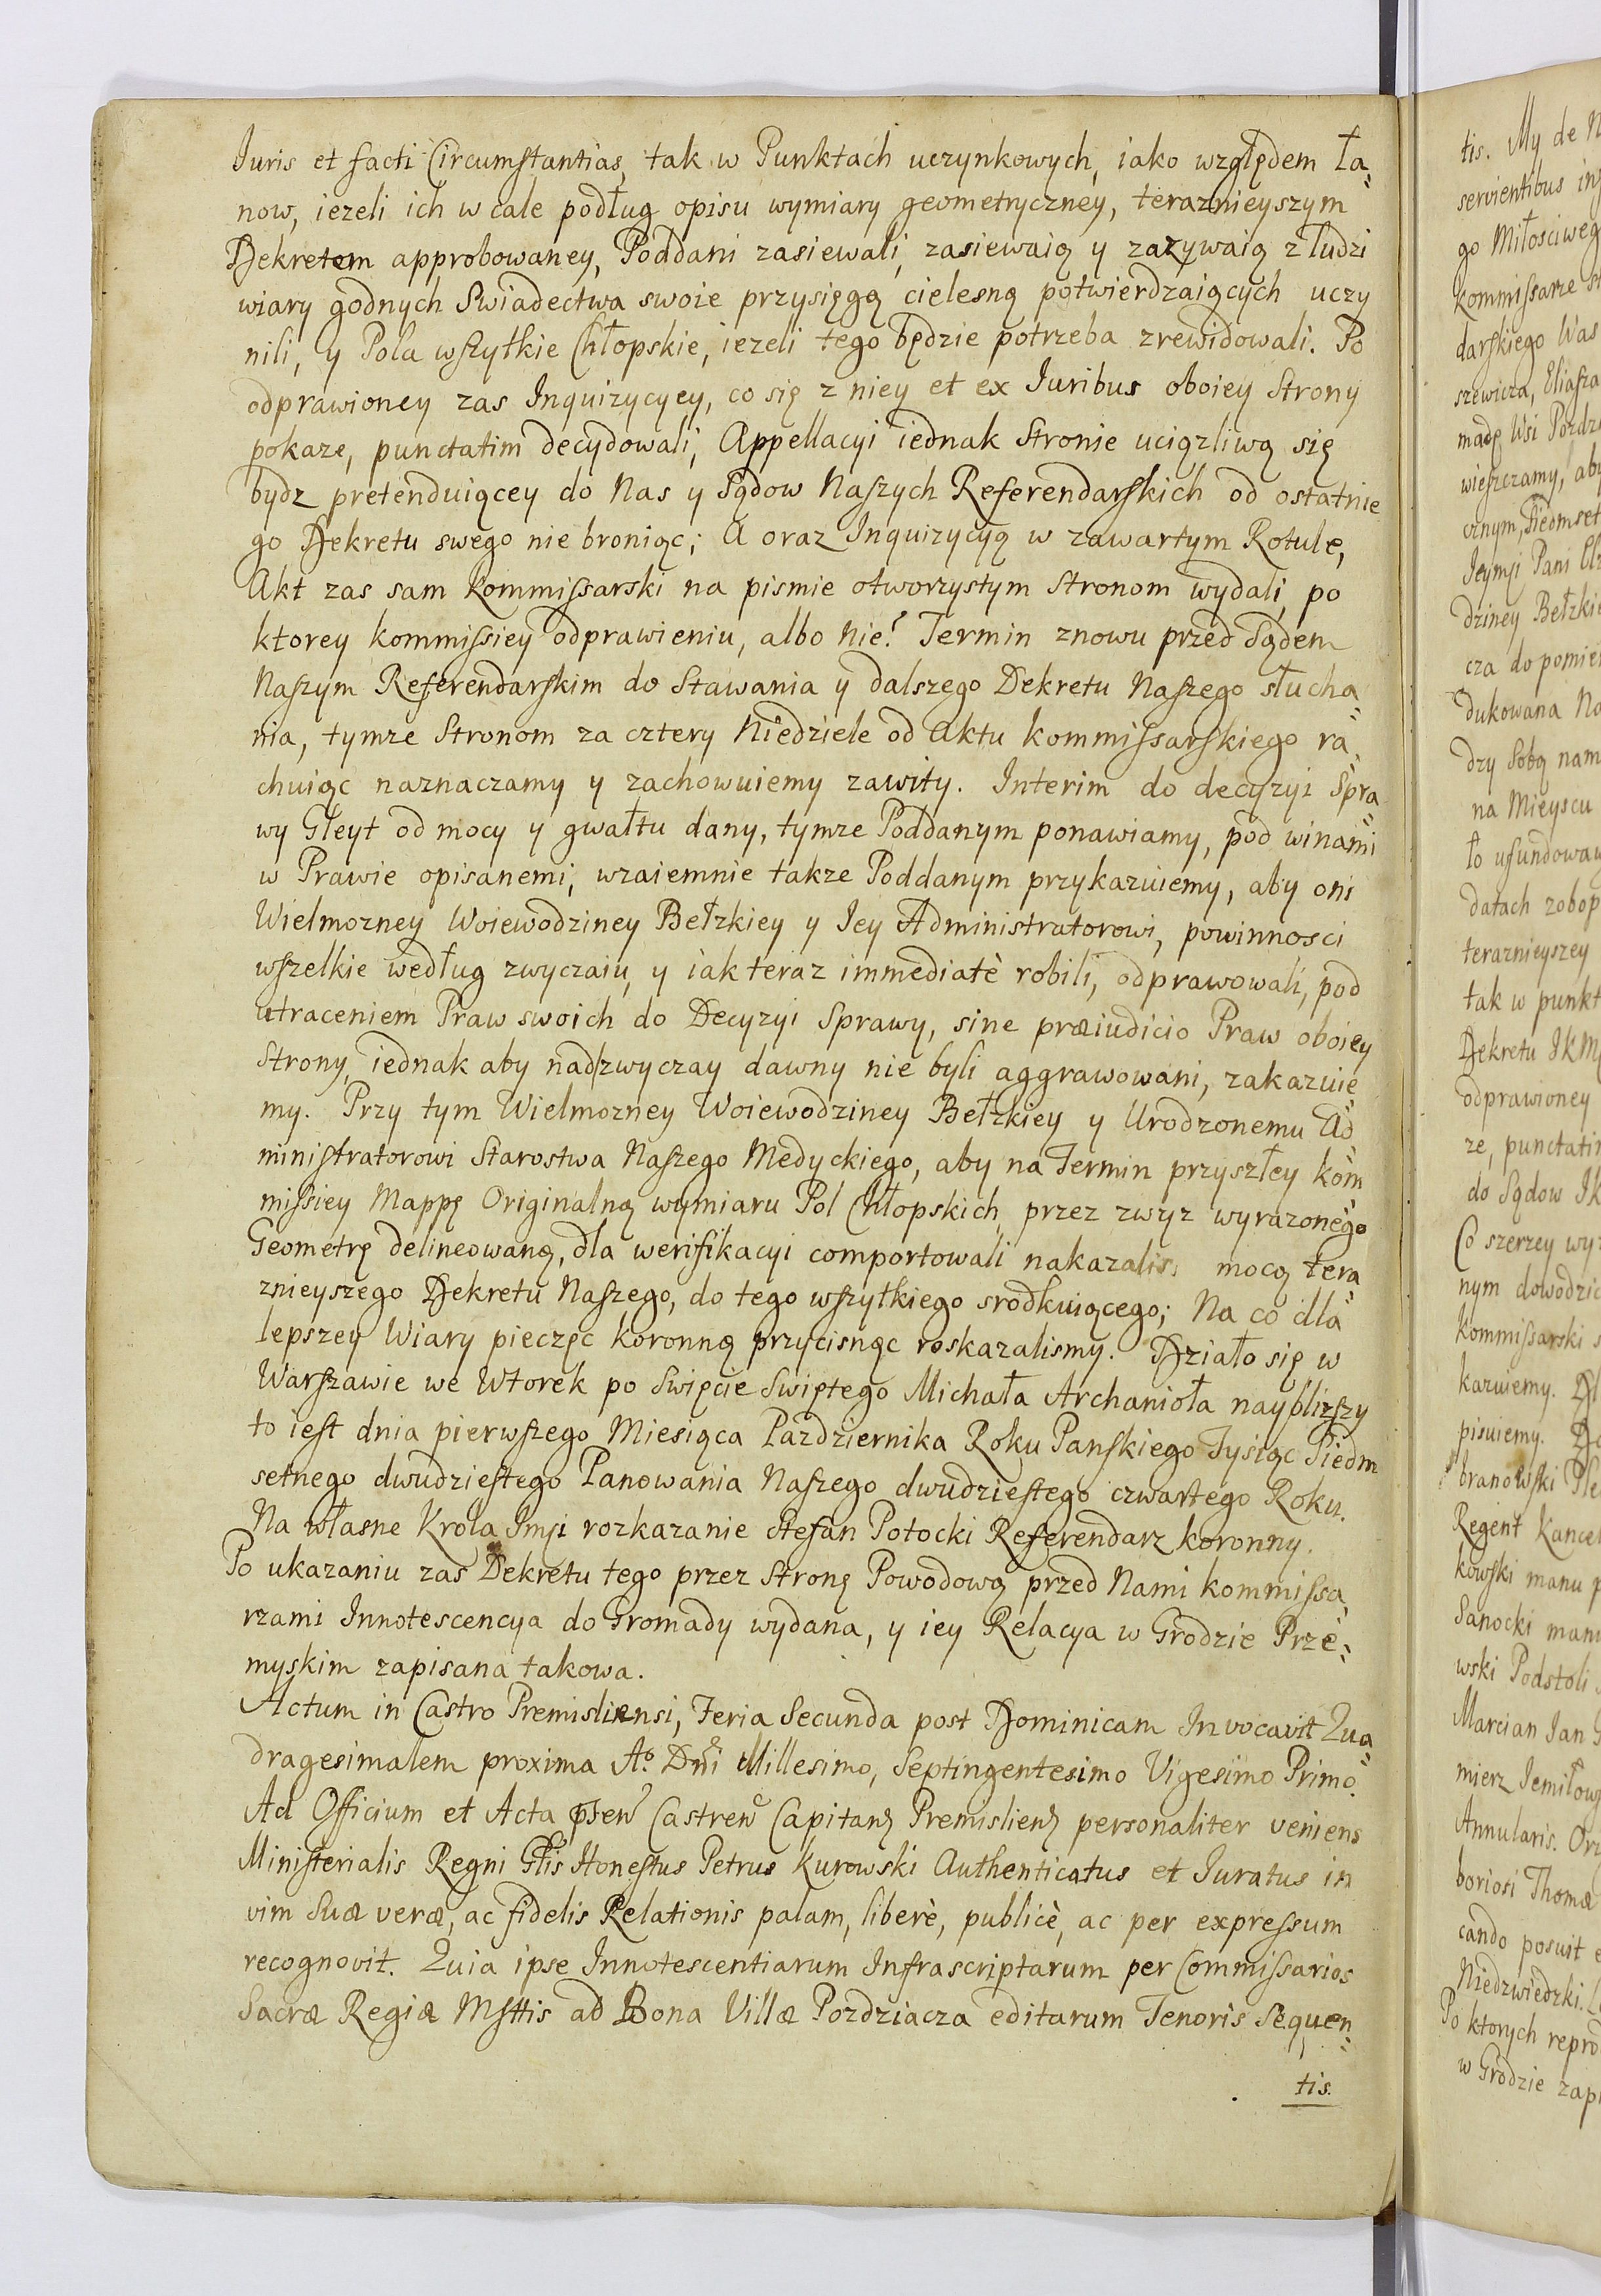 Iuris et facti Circumstantias, tak w Punktach uczynkowych, iako względem ła„
now, iezeli ich w cale podług opisu wymiary geometryczney, teraznieyszym
Dekretem approbowaney, Poddani zasiewali, zasiewaią y zazywaią z ludzi
wiary godnych Swiadectwa swoie przysięgą cielesną potwierdzaiących uczy
nili, y Pola wszytkie Chłopskie, iezeli tego będzie potrzeba zrewidowali. Po
odprawioney zas Inquizycyey, co się z niey et ex Iuribus oboiey Strony
pokaze, punctatim decydowali, Appellacyi iednak Stronie uciązliwą się
bydz pretenduiącey do Nas y Sądow Naszych Referendarskich od ostatnie
go Dekretu swego nie broniąc; A oraz Inquizycyą w zawartym Rotule,
Akt zas sam Kommissarski na pismie otworzystym Stronom wydali, po
ktorey kommissiey odprawieniu, albo nie? Termin znowu przed Sądem
Naszym Referendarskim do Stawania y dalszego Dekretu Naszego słucha„
nia, tymze Stronom za cztery Niedziele od Aktu kommissarskiego ra„
chuiąc naznaczamy y zachowuiemy zawity. Interim do decyzyi Spra„
wy Gleyt od mocy y gwałtu dany, tymze Poddanym ponawiamy, pod winami
w Prawie opisanemi, wzaiemnie takze Poddanym przykazuiemy, aby oni
Wielmozney Woiewodziney Bełzkiey y Iey Administratorowi, powinnosci
wszelkie według zwyczaiu, y iak teraz immediatè robili, odprawowali, pod
utraceniem Praw swoich do Decyzyi Sprawy, sine præiudicio Praw oboiey
Strony, iednak aby nad zwyczay dawny nie byli aggrawowani, zakazuie„
my. Przy tym Wielmozney Woiewodziney Bełzkiey y Urodzonemu Ad„
ministratorowi Starostwa Naszego Medyckiego, aby na Termin przyszłey kom„
missiey Mappę Originalną wymiaru Pol Chłopskich, przez zwyz wyrazonego
Geometrę delineowaną, dla werifikacyi comportowali nakazalis, mocą tera„
znieyszego Dekretu Naszego, do tego wszytkiego srodkuiącego; Na co dla
lepszey Wiary pieczęc koronną przycisnąc roskazalismy. Działo się w
Warszawie we Wtorek po Swięcie Swiętego Michała Archanioła naybliższy
to iest dnia pierwszego Miesiąca Pazdziernika Roku Panskiego Tysiąc Siedm
setnego dwudziestego Panowania Naszego dwudziestego czwartego Roku.
Na własne Krola Imsi rozkazanie Stefan Potocki Referendarz koronny.
Po ukazaniu zas Dekretu tego przez Stronę Powodową przed Nami kommissa„
rzami Innotescencya do Gromady wydana, y iey Relacya w Grodzie Prze„
myskim zapisana takowa.
Actum in Castro Premisliensi, Feria Secunda post Dominicam Invocavit Qua„
dragesimalem proxima Aº. Dñi Millesimo, Septingentesimo Vigesimo Primo.
Ad Officium et Acta Castren Capitan Premislien personaliter veniens
Ministerialis Regni Glis Honestus Petrus Kurowski Authenticatus et Iuratus in
vim Suæ veræ, ac fidelis Relationis palam, liberè, publicè, ac per expressum
recognovit. Quia ipse Innotescentiarum Infrascriptarum per Commissarios
Sacræ Regiæ Msttis ad Bona Villæ Pozdziacza editarum Tenoris Sequen„
tis.
tis. My de
servientibus
go Miłosciweg
kommissarze
darskiego Was
szewicza, Eliasza
madę Wsi Pozdz
wieszczamy, aby
cznym, Siedmset
Ieymsi Pani Elz
dziney Bełzkie
cza do pomie
dukowana Na
dzy Sobą nam
na Mieyscu
to ufundowan
datach zobop
teraznieyszey
tak w punkt
Dekretu IKM
odprawioney
ze, punctatim
do Sądow IK
Co szerzey wy
nym dowodzic
Kommissarski s
kazuiemy.
pisuiemy.
branowski
Regent Kancel
kowski manu p
Sanocki manu
wski Podstoli
Marcian Ian
mierz Iemiłow
Annularis. Ori
boriosi Thomæ
cando posuit e
Niedzwiedzki.
Po ktorych repro
w Grodzie zap